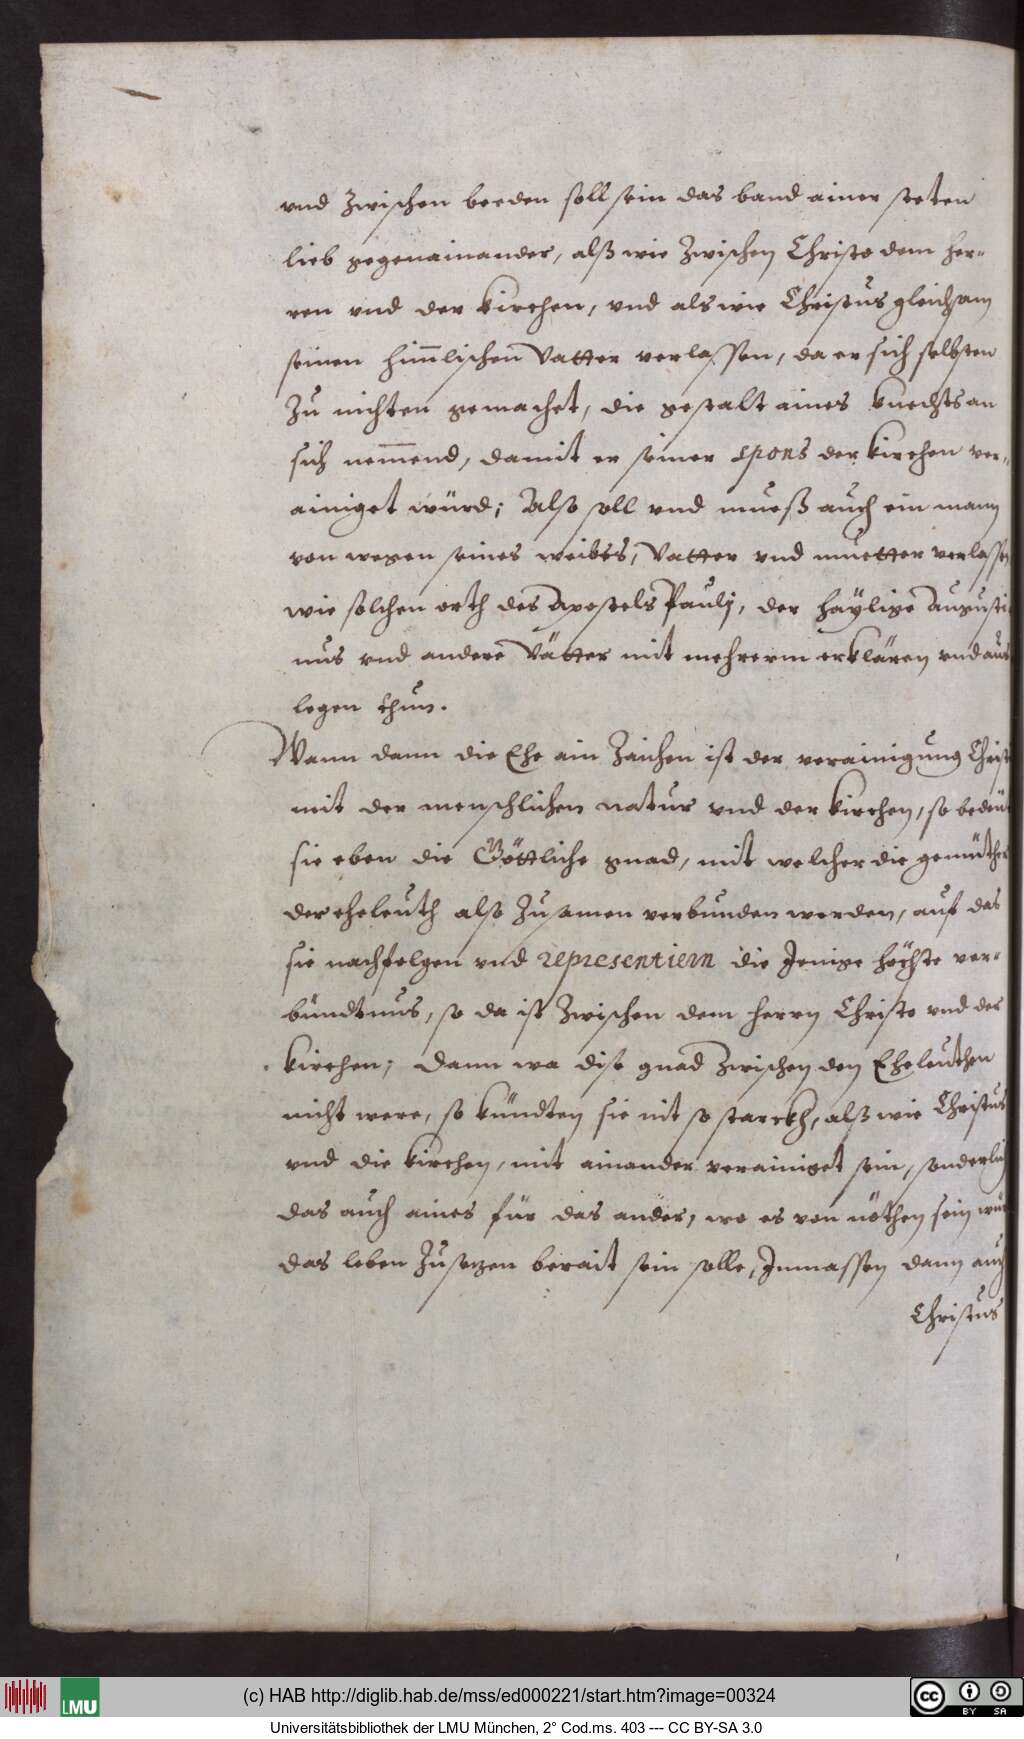 vnd zwischen beeden soll sein das band ainer steten
lieb gegenainander, alß wie zwischen Christo dem her-
ren vnd der kirchen, vnd als wie Christus gleichsam
seinen himlischen Vatter verlassen, da er sich selbsten
zu nichten gemachet, die gestalt aines knechts an
sich nemend, damit er seiner spons der kirchen ver-
ainiget würd; Also soll vnd mueß auch ein mann
von wegen seines weibes, Vatter vnd muetter verlassen
wie solchen orth des Apostels Paulj, der haÿlige Augusti
nus vnd andere Vätter mit mehrerm erklären vnd aus
legen thun.
Wann dann die Ehe ain Zaichen ist der verainigung Christi
mit der menschlichen natur vnd der kirchen, so bedeüt
sie eben die Göttliche gnad, mit welcher die gemüther
der eheleuth also zusamen verbunden werden, auf das
sie nachfolgen vnd representiern die Jenige höchste ver-
bündtnus, so da ist zwischen dem herrn Christo vnd der
kirchen; dann wa dise gnad zwischen den Eheleuthen
nicht were, so kündten sie nit so starckh, alß wie Christus
vnd die kirchen, mit ainander verainiget sein, sonderlich
das auch aines für das ander, wo es von nöthen sein würd
das leben zusezen berait sein solle, Inmassen dann auch
Christus
(c) HAB http://diglib.hab.de/mss/ed000221/start.htm?image=00324
LMU
CC BY SA
Universitätsbibliothek der LMU München, 2° Cod.ms. 403 --- CC BY-SA 3.0